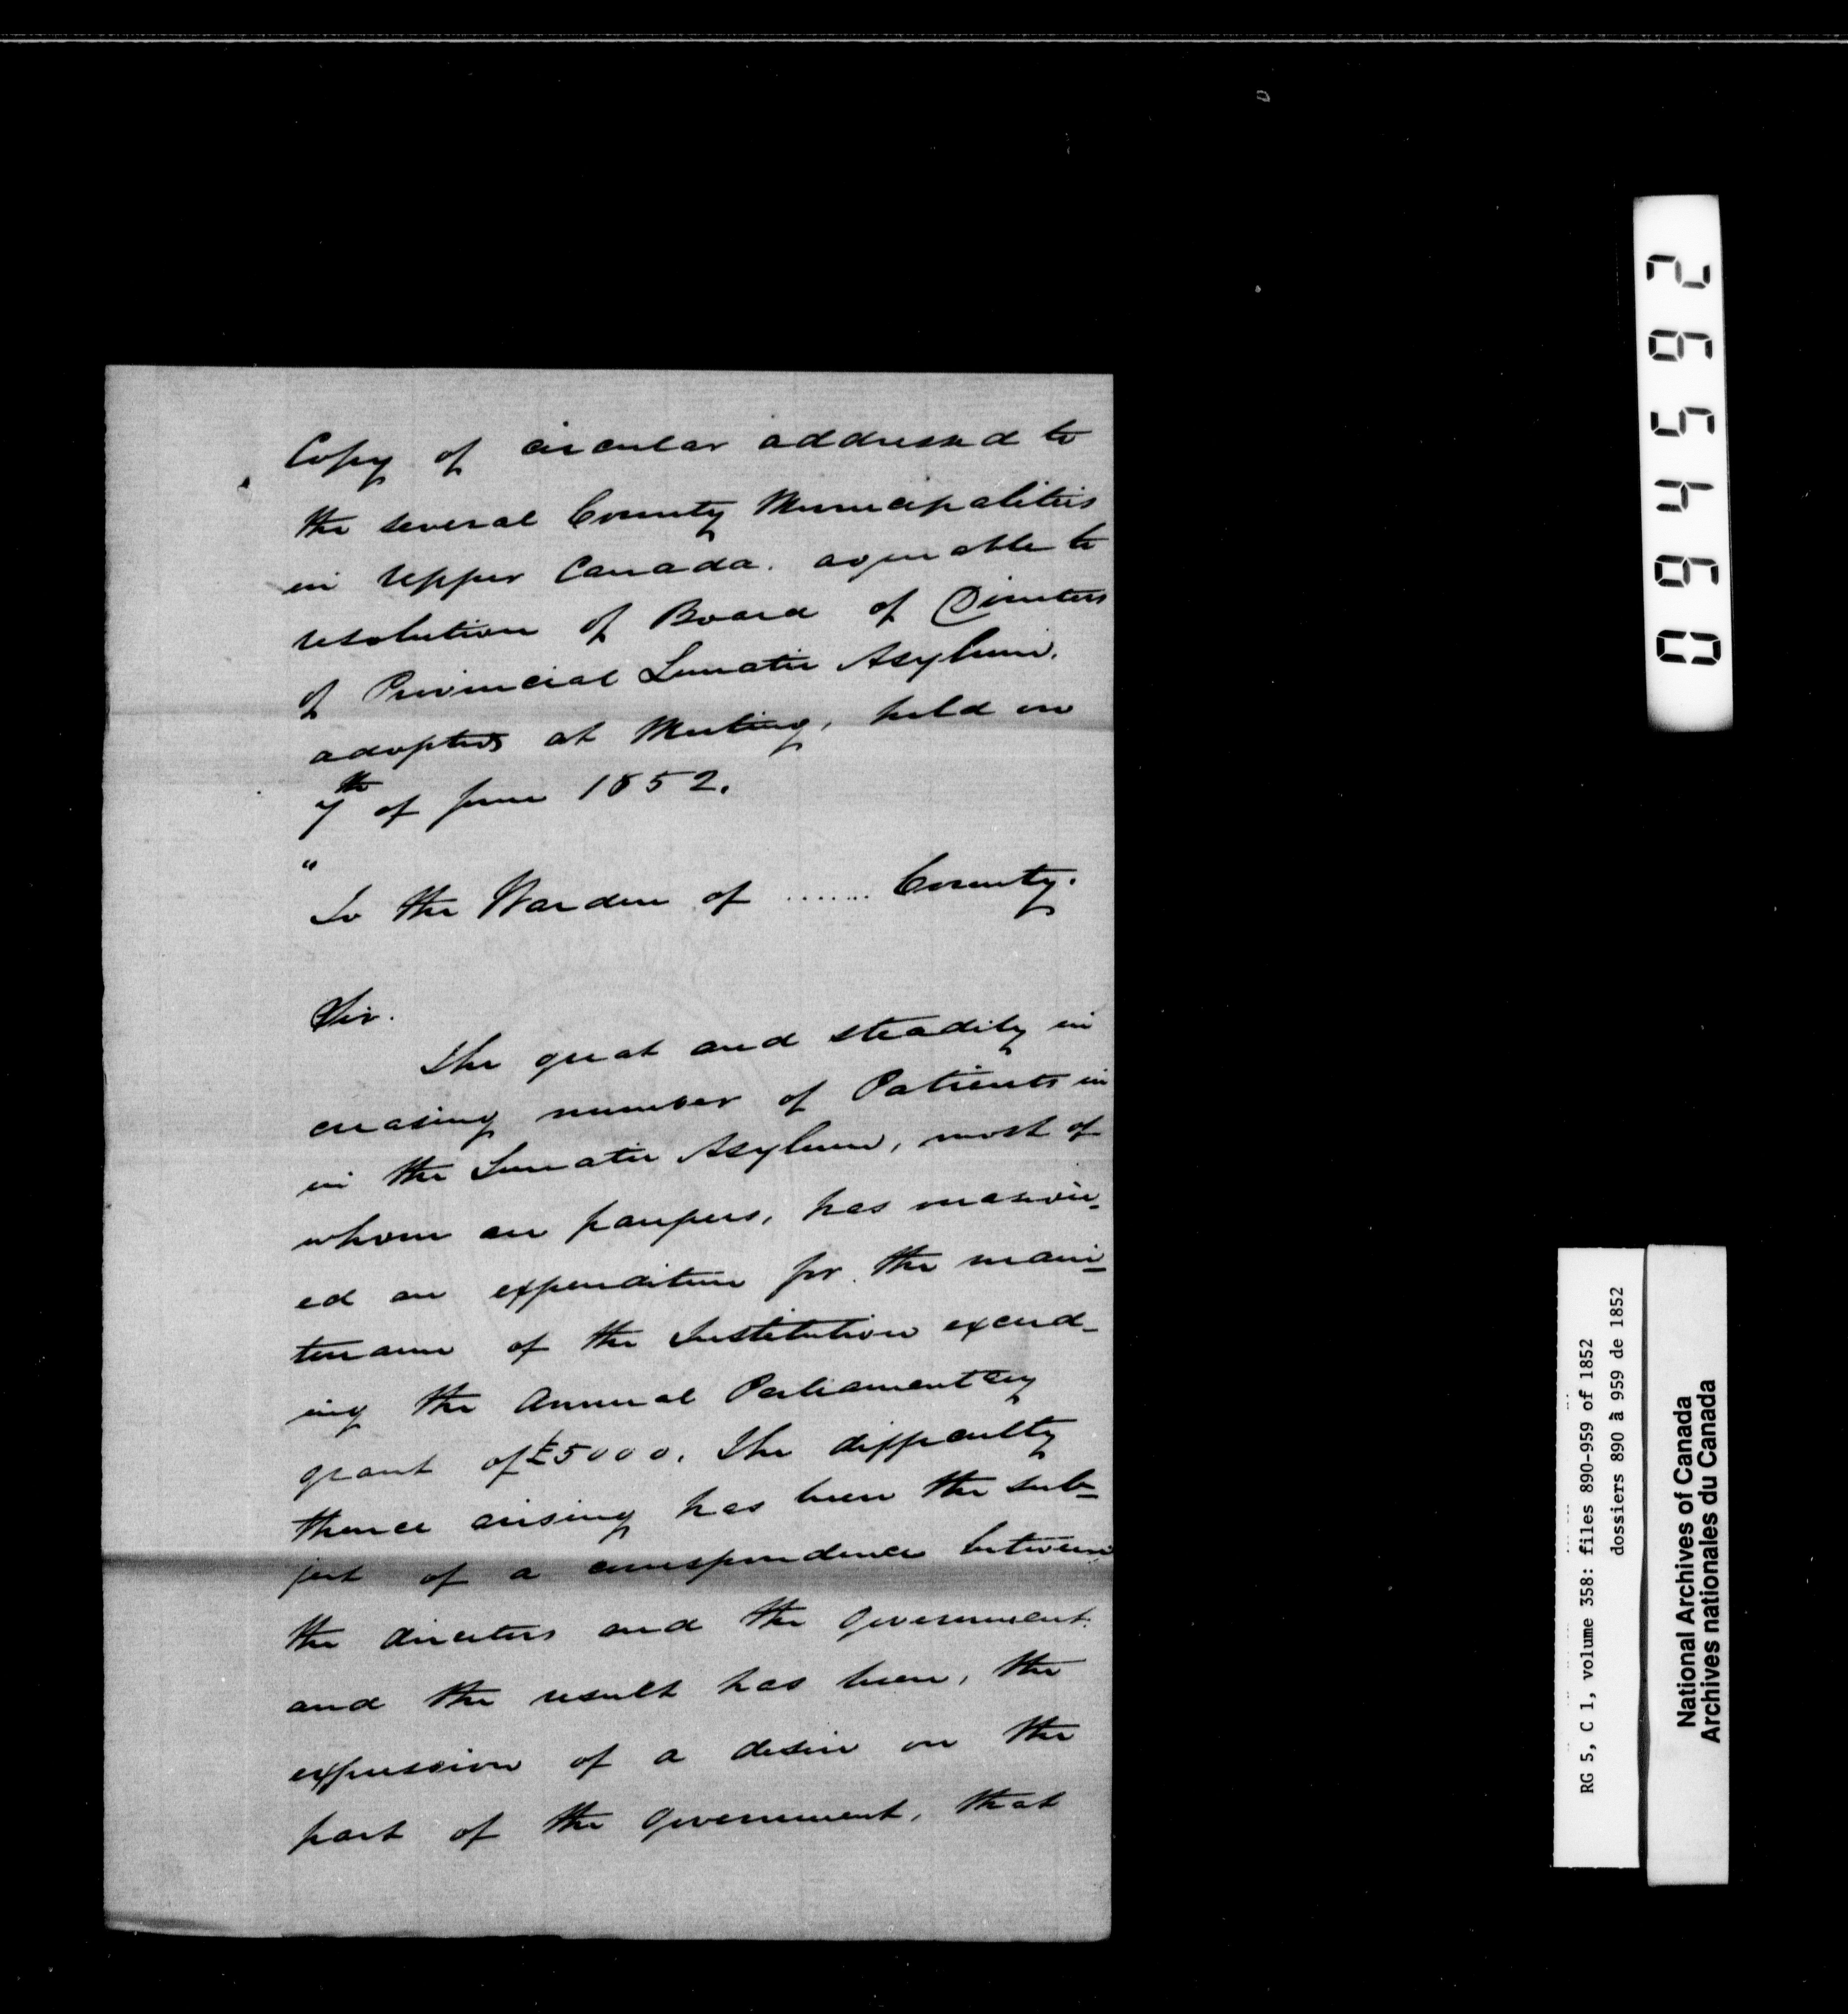 Copy of circular addressed to
the several County Municipalities
in Upper Canada. agreeable to
resolution of Board of Directors
of Provincial Lunatic Asylum.
adopted at Meeting, held on
7th of June 1852.
"
To the Warden of ....... County.
Sir.
The great and steadily in
creasing number of Patients in
in the Lunatic Asylum, most of
whom are paupers, has
ed an expenditure for the main-
tenance of the Institution exceed-
ing the Annual Parliamentary
grant of £5000. The difficulty
thence arising has been the sub-
ject of a correspondence between
the directors and the Government.
and the result has been, the
expression of a desire on the
part of the Government, that
094592
RG 5, C 1, volume 358: files 890-959 of 1852
dossiers 890 à 959 de 1852
National Archives of Canada
Archives nationales du Canada